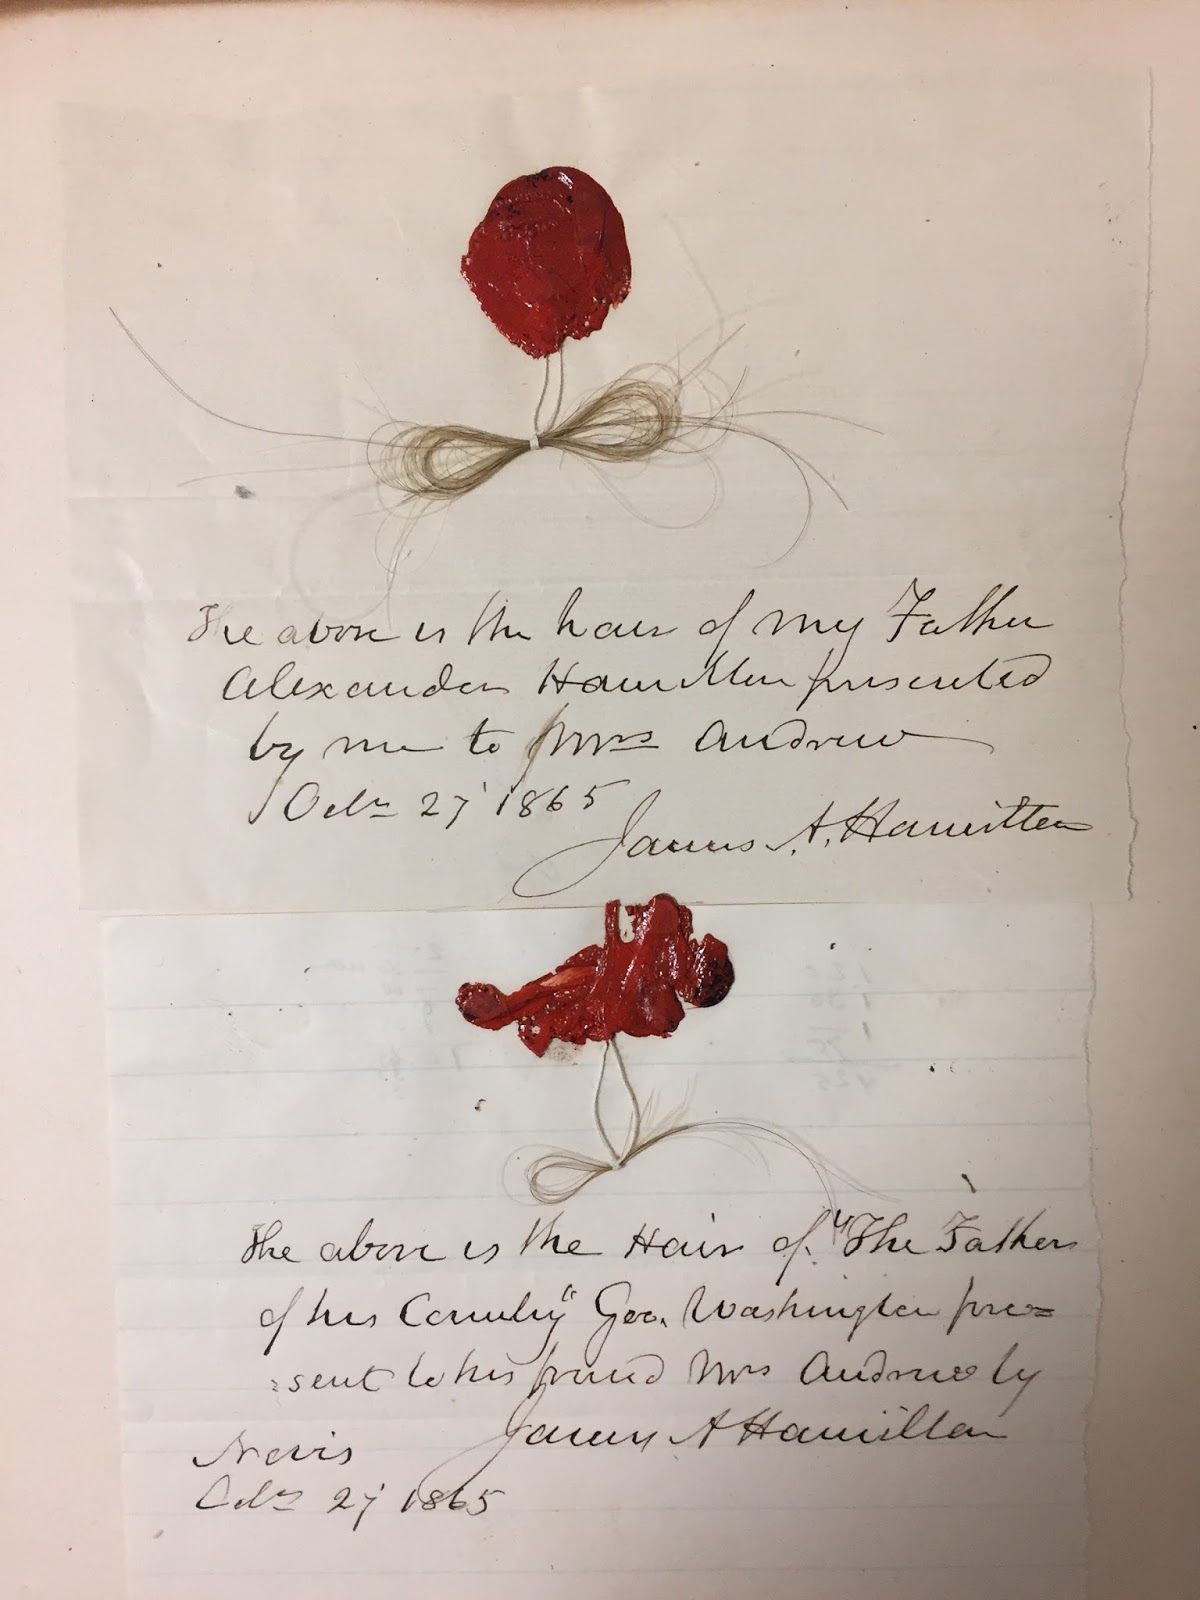 The above is the hair of my Father
Alexander Hamilton presented
by me to Mrs Andrew
Octr 27 1865
James A. Hamilton
The above is the Hair of "The Father
of his Country" Geo. Washington pre=
=sent to his friend Mrs Andrew by
James A Hamilton
Nevis
Octr 27 1865